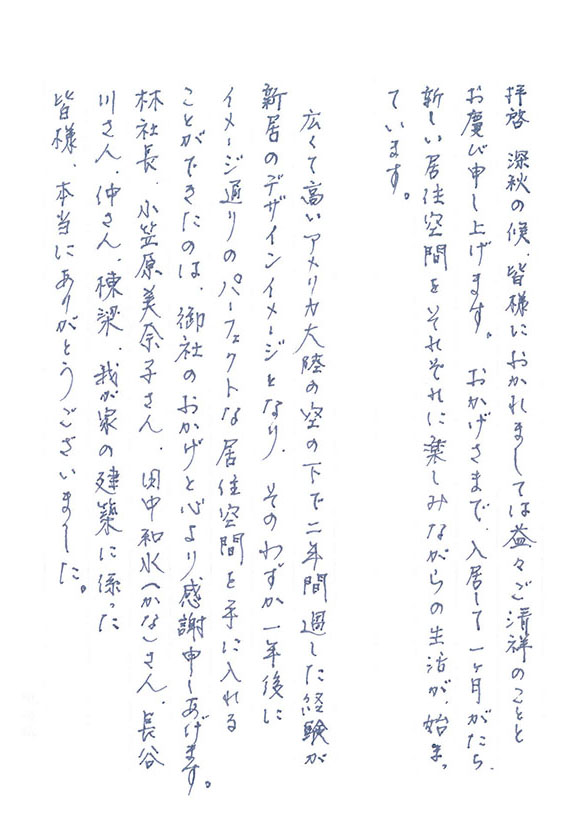 拝啓 深秋の候、皆様におかれましては益々ご清祥のことと
お慶び申し上げます。おかげさまで、入居して一ヶ月がたち、
新しい居住空間をそれぞれに楽しみながらの生活が、始まっ
ています。
広くて高いアメリカ大陸の空の下で二年間過した経験が
新居のデザインイメージとなり、そのわずか一年後に
イメージ通りのパーフェクトな居住空間を手に入れる
ことができたのは、御社のおかげと心より感謝申しあげます。
林社長、小笠原美奈子さん、田中和水(かな)さん、長谷
川さん、仲さん、棟梁、我が家の建築に係った
皆様、本当にありがとうございました。